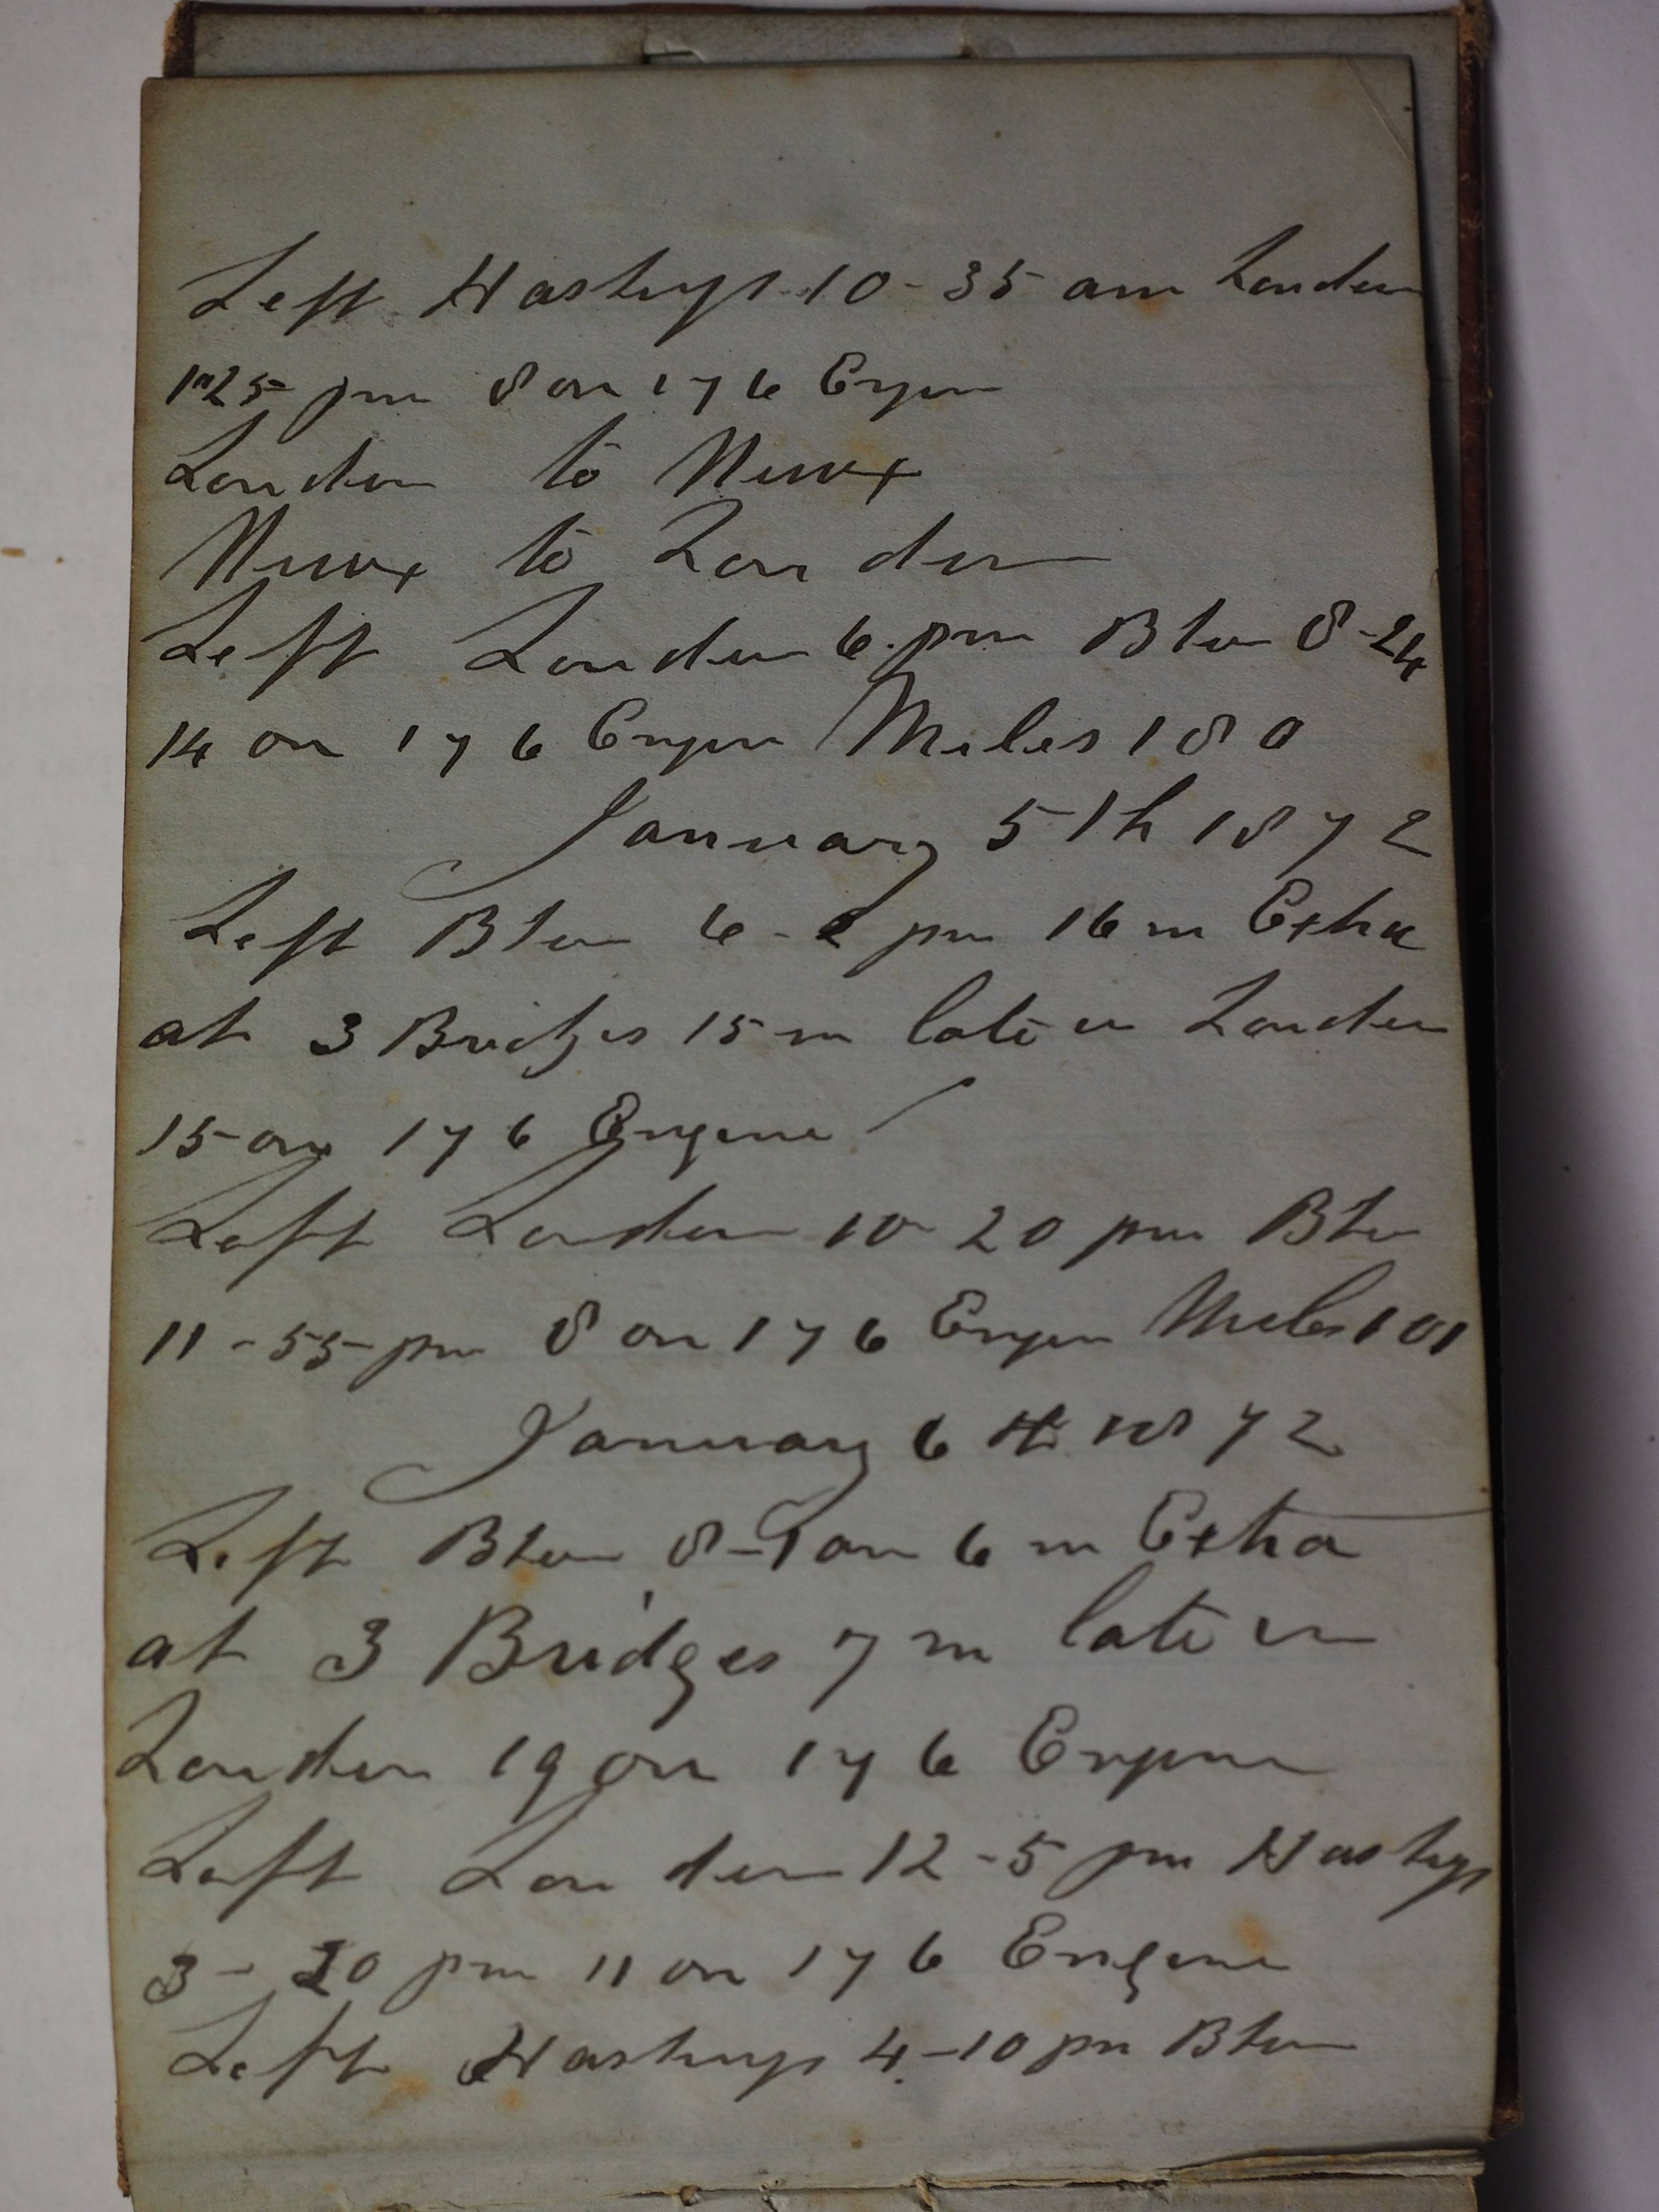 Left Hastings 10-35 am London
1"25 pm 8 on 176 Engin
London to Newx
Newx to London
Left London 6 pm Bton 8-24
14 on 176 Engin Miles 180
January 5th 1872
Left Bton 6-2 pm 16 m Extra
at 3 Bridges 15 m late in London
15 on 176 Engine
Left London 10 20 pm Bton
11-55 pm 8 on 176 Engin Miles 101
January 6th 1872
Left Bton 8-9 am 6 m Extra
at 3 Bridges 7 m late in
London 19 on 176 Engine
Left London 12-5 pm Hastings
3-20 pm 11 on 176 Engine
Left Hastings 4-10 pm Bton